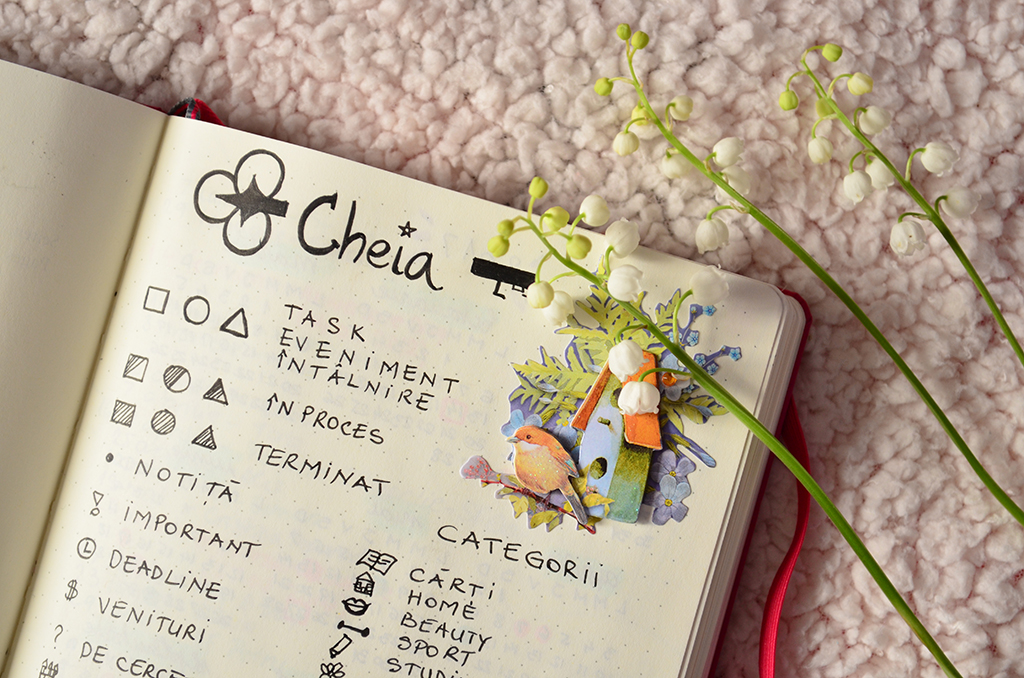 Cheia
TASK
EVENIMENT
ÎNTÂLNIRE
ÎN PROCES
TERMINAT
NOTIȚĂ
! IMPORTANT
DEADLINE
$ VENITURI
? DE CERCE
CATEGORII
CĂRȚI
HOME
BEAUTY
SPORT
STUDI